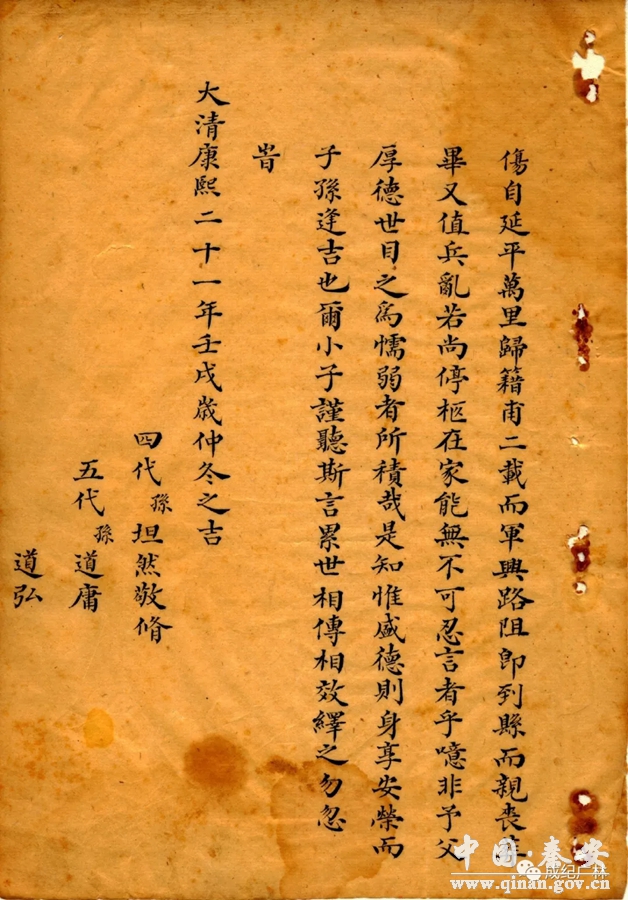 傷自延平萬里歸籍甫二載而軍興路阻卽到縣而親喪
畢又值兵亂若尚停柩在家能無不可忍言者乎噫非予父
厚德世目之爲懦弱者所積哉是知惟盛德則身享安榮而
子孫逢吉也爾小子謹聽斯言累世相傳相效繹之勿忽
旹
大清康熙二十一年壬戌歲仲冬之吉
四代孫坦然敬脩
五代孫道庸
道弘
中国·秦安
成纪广林
www.qinan.gov.cn